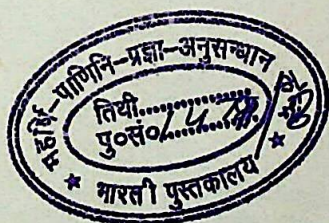 महर्षि-पाणिनि-प्रज्ञा-अनुसन्धान
तिथी............
पु०सं०
भारती पुस्तकालय